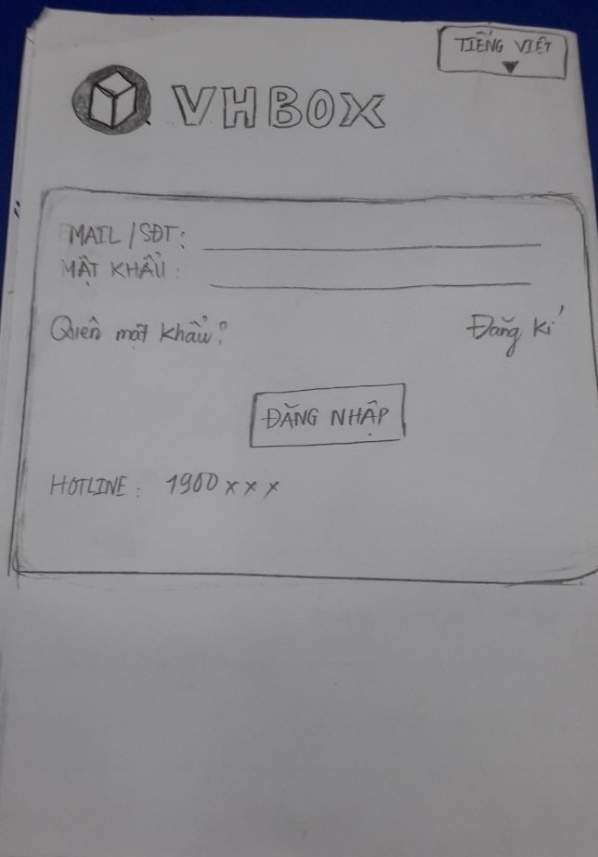 TIẾNG VIỆT
VHBOX
MAIL/SĐT:
MẬT KHẨU:
Quên mật khẩu?
Đăng kí
ĐĂNG NHẬP
HOTLINE: 1900xxx